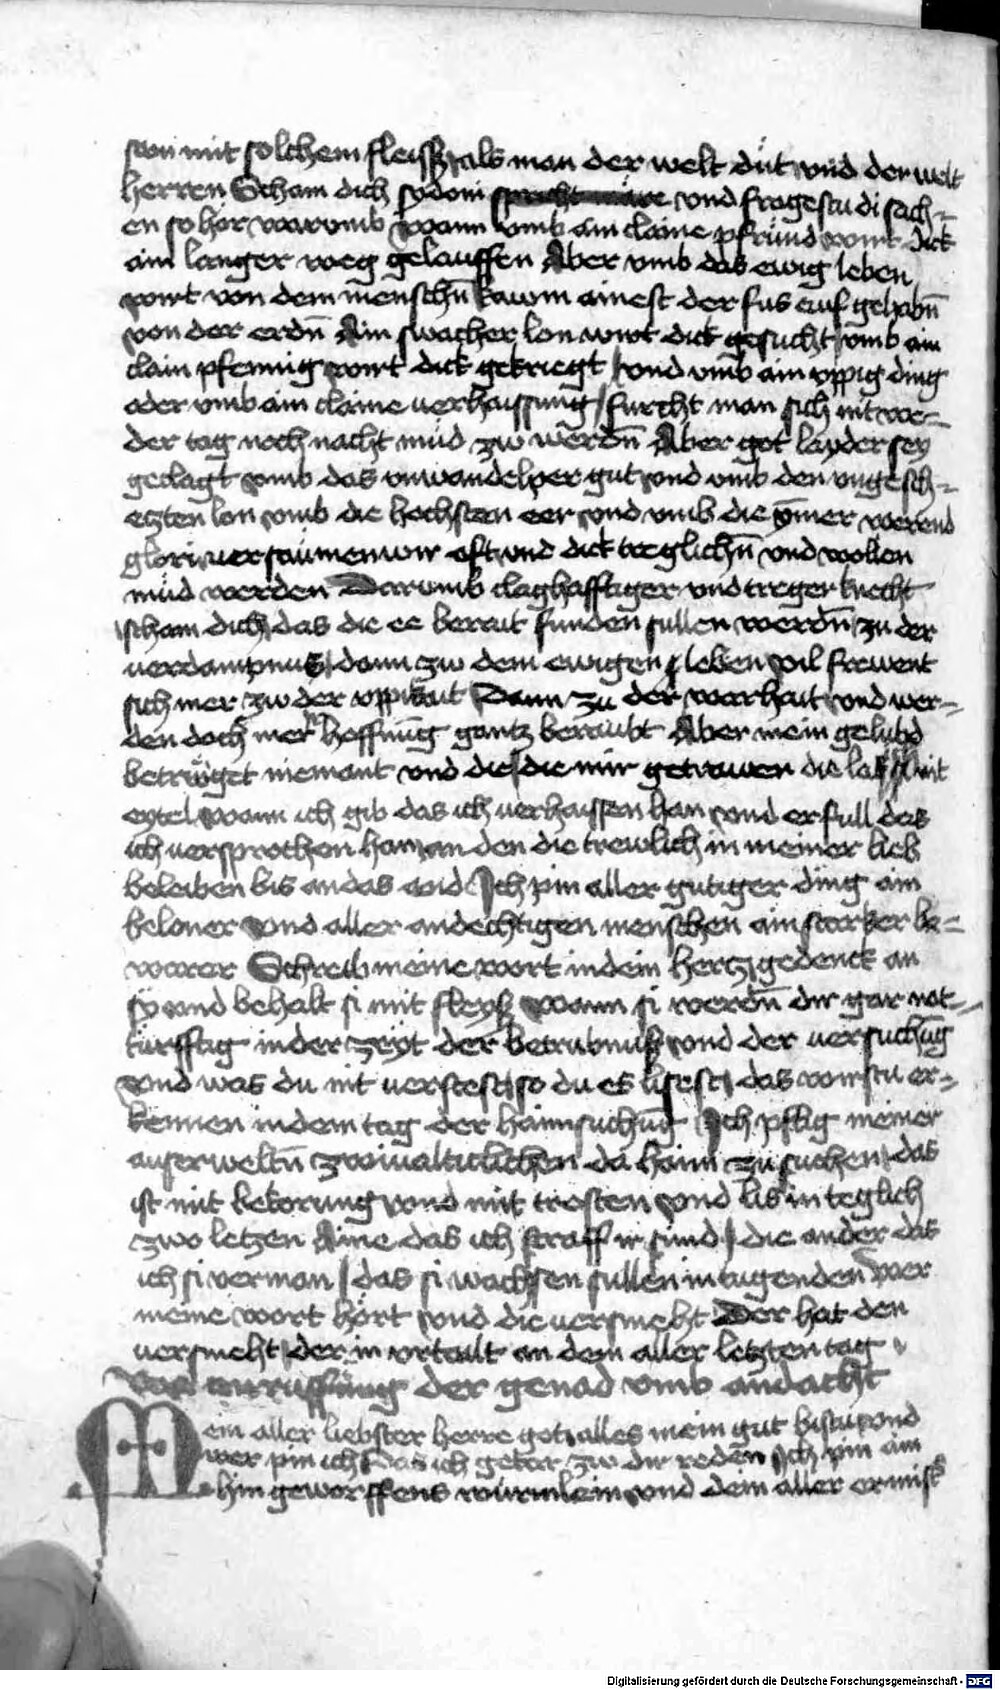 svn mit solchem fleiss als man der welt dut vnd der welt
herren Scham dich sydom spricht mare vnd fragestu di sach-
en so hör warumb Wann vmb ain claine pfrund wirt dick
ain langer weg gelauffen Aber vmb das ewig leben
wirt von dem menschn̄ kawm ainest der fus auf gehabn̄
von der erdn̄ Ain swacher lon wirt dick gesucht vmb ain
clain pfennig wirt dick gekriegt vnd vmb ain vppig ding
oder vmb ain claine verhaissung furcht man sich nit we-
der tag noch nacht müd zw werdn̄ Aber got layder sey
geclagt vmb das vnwandelper gut vnd vmb den vngesch-
etzten lon vmb die hochsten eer vnd vmb die ymer werend
glori versaumen wir oft vnd dick treglichn̄ vnd wollen
müd werden Darumb claghafftiger vnd treger knecht
scham dich das die ee berait funden sullen werdn̄ zu der
verdampnus dann zw dem ewigen leben vil frewent
sich mer zw der vppikait Dann zu der warhait vnd wer-
den doch irer hoffnūg gantz beraubt Aber mein gelubd
betrüget niemant vnd die die mir getrawen die las ich nit
eytel wann ich gib das ich verhaissen han vnd erfull das
ich versprochen han an den die trewlich in meiner lieb
beleiben bis an das end Ich pin aller gutiger ding ain
beloner vnd aller andechtigen menschen ain starcker be-
warer Schreib meine wort in dein hertz gedenck an
sy vnd behalt si mit fleyß Wann si werdn̄ dir gar not-
türfftig in der zeyt der betrubnuß vnd der versuchūg
Vnd was du nit verstest so du es lisest das wirstu er-
kennen in dem tag der haimsuchūg Ich pflig meiner
auserweltn̄ zwivalticlichen da haim zu suchen das
ist mit bekorung vnd mit trosten vnd lis in teglich
zwo letzen Aine das ich straff ir sund die ander das
ich si verman das si wachsen sullen in tugenden Wer
meine wort hört vnd die versmeht Der hat den
versmeht der in vrtailt an dem aller letzten tag
Von anruffūng der genad vmb andacht
Mein aller liebster herre got alles mein gut bistu vnd
wer pin ich das ich getar zw dir reden Ich pin ain
hin geworffens würmlein vnd dein aller ermist